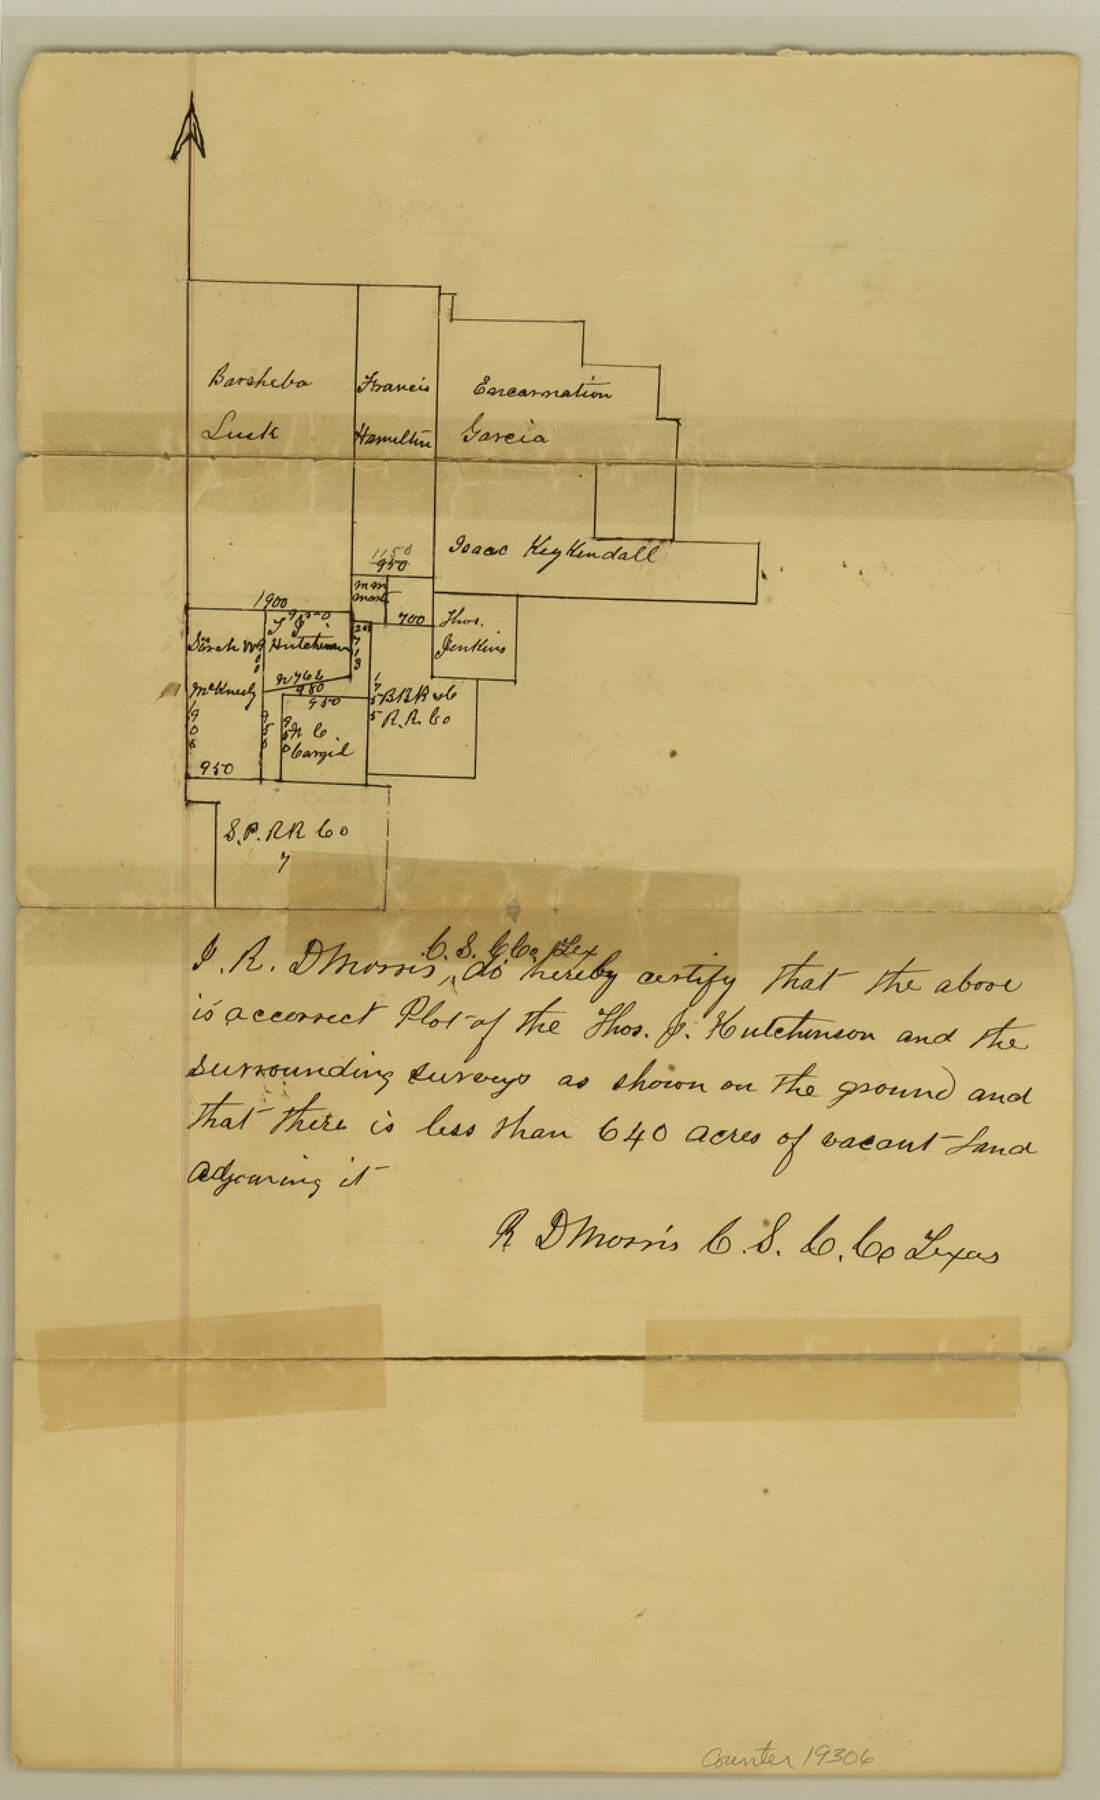 Barsheba
Luck
Francis
Hamilton
Encarnation
Garcia
Isaac KeyKendall
1150
950
M M
1900
950
T J
Hutchinson
700
Thos.
Jenkins
Sarah
McKneely
1908
950
N 762
980
950
950
N C
Cargil
BBB & C
R. R. Co
S. P. RR Co
7
C. S. C Co Tex
I. R. D Morris, do hereby certify that the above
is a ccorrect Plot of the Thos. J. Hutchinson and the
surrounding surveys as shown on the ground and
that there is less than 640 acres of vacant land
adjouring it
R D Morris C. S. C. Co Texas
Counter 19306